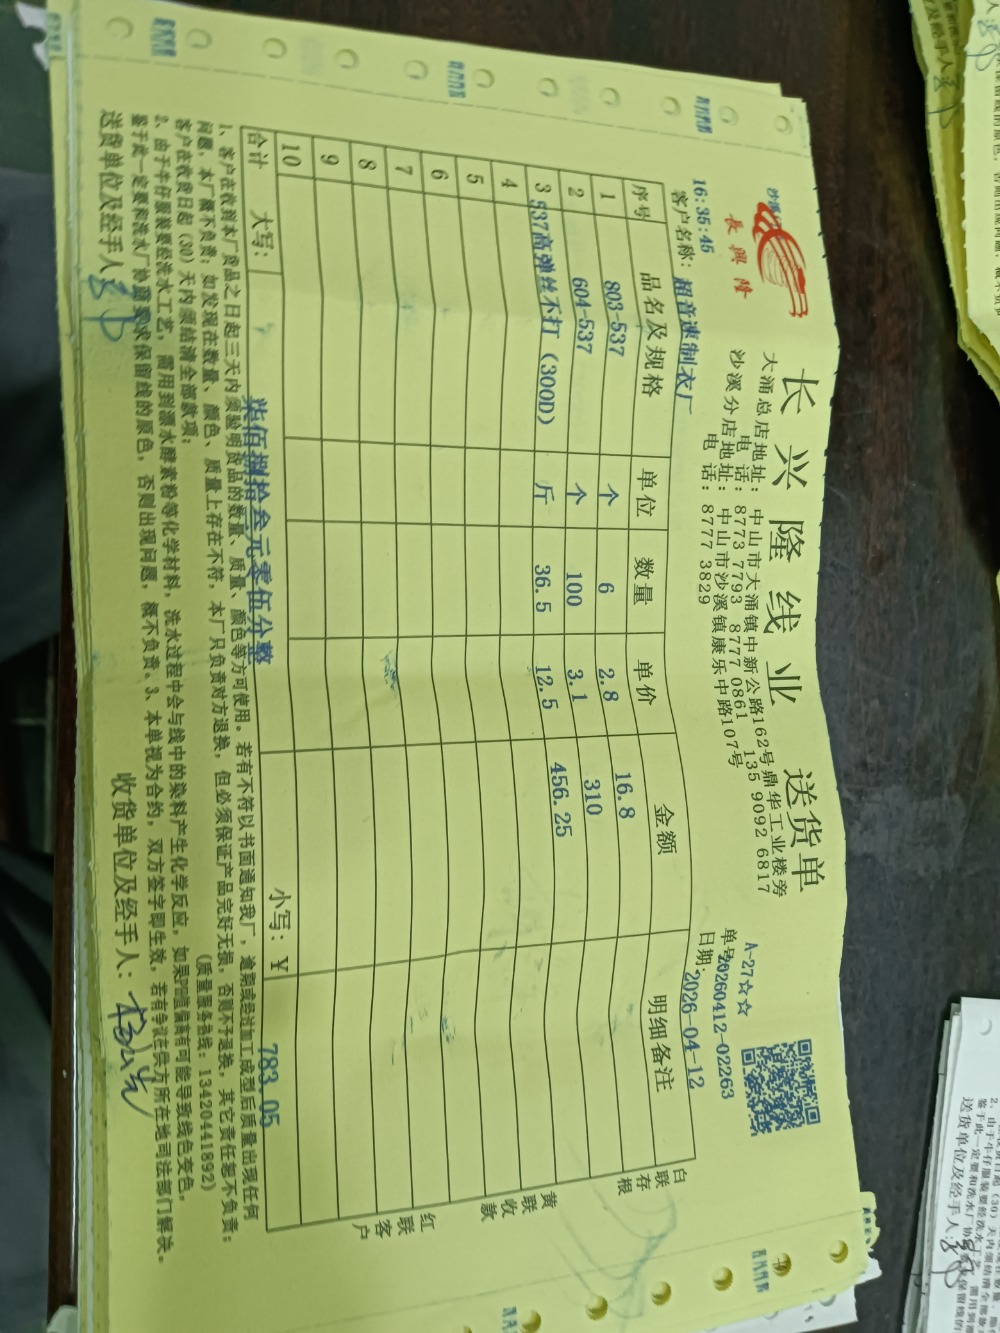 长兴隆线业 送货单
沙溪
長興隆
大涌总店地址: 中山市大涌镇中新公路162号鼎华工业楼旁
电 话: 8773 7793 8777 0861 135 9092 6817
沙溪分店地址: 中山市沙溪镇康乐中路107号
电 话: 8777 3829
A-27☆☆
单号20260412-02263
日期: 2026-04-12
16:35:45
客户名称: 超音速制衣厂
序号 品名及规格 单位 数量 单价 金额 明细备注
1 803-537 个 6 2.8 16.8
2 604-537 个 100 3.1 310
3 537高弹丝不打 (300D) 斤 36.5 12.5 456.25
4
5
6
7
8
9
10
合计 大写: 柒佰捌拾叁元零伍分整 小写: ¥ 783.05
白联存根
黄联收款
红联客户
1、客户在收到本厂货品之日起三天内须验明货品的数量、质量、颜色等方可使用。若有不符以书面通知我厂, 逾期或经过加工成型后质量出现任何
问题, 本厂概不负责; 如发现在数量、颜色、质量上存在不符, 本厂只负责对方退换, 但必须保证产品完好无损, 否则不予退换, 其它责任恕不负责;
客户在收货日起 (30) 天内须结清全部款项; (质量服务热线: 13420441892)
2、由于牛仔服装要经洗水工艺, 需用到漂水酵素粉等化学材料, 洗水过程中会与线中的染料产生化学反应, 如果PH值偏高有可能导致线色变色,
鉴于此一定要和洗水厂协商要求保留线的原色, 否则出现问题, 概不负责。3、本单视为合约, 双方签字即生效, 若有争议在供方所在地司法部门解决。
送货单位及经手人: 收货单位及经手人: